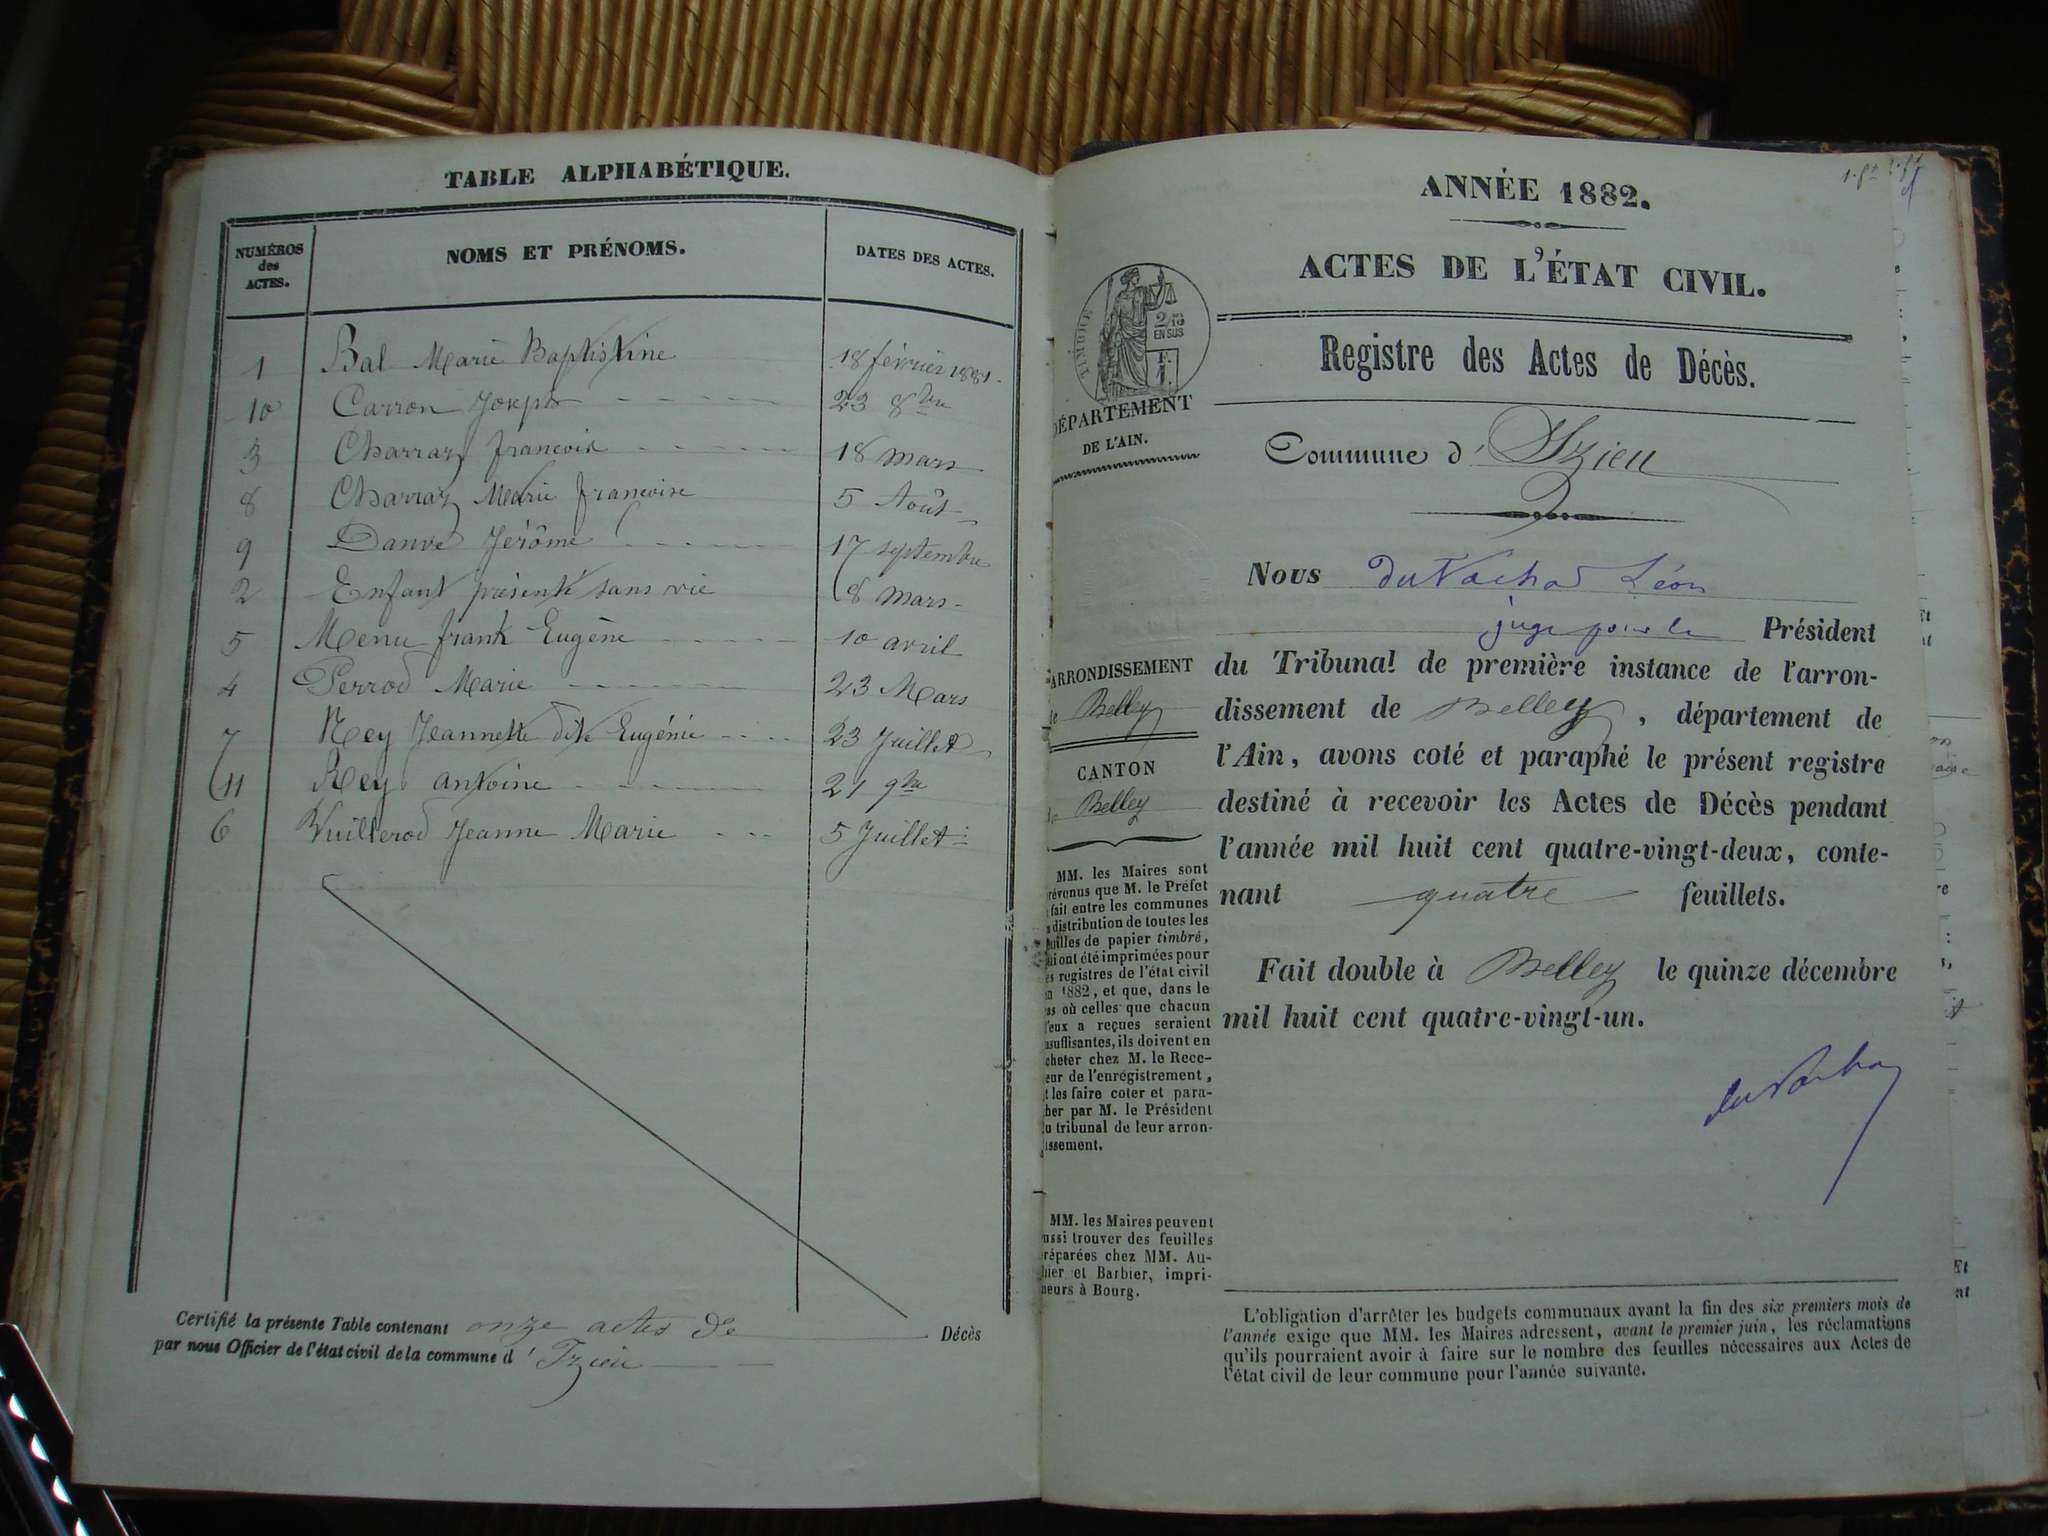 TABLE ALPHABÉTIQUE.
NUMÉROS des ACTES. NOMS ET PRÉNOMS. DATES DES ACTES.
1 Bal Marie Baptistine 18 février 1881.
10 Carron Joseph 23 8bre
3 Charraz françois 18 mars
8 Charraz Marie françoise 5 Août
9 Danve Jérôme 17 septembre
2 Enfant présenté sans vie 8 mars
5 Menu frank Eugène 10 avril
4 Perrod Marie 23 Mars
7 Rey Jeannette dite Eugénie 23 Juillet
11 Rey antoine 21 9bre
6 Vuillerod Jeanne Marie 5 Juillet
Certifié la présente Table contenant onze actes de Décès
par nous Officier de l'état civil de la commune d' Izieu
ANNÉE 1882.
ACTES DE L'ÉTAT CIVIL.
TIMBRE
2/10 EN SUS
DÉPARTEMENT
DE L'AIN.
Registre des Actes de Décès.
Commune d' Izieu
Nous Léon
juge pour le Président
ARRONDISSEMENT
de Belley
CANTON
de Belley
du Tribunal de première instance de l'arron-
dissement de Belley, département de
l'Ain, avons coté et paraphé le présent registre
destiné à recevoir les Actes de Décès pendant
l'année mil huit cent quatre-vingt-deux, conte-
nant quatre feuillets.
Fait double à Belley le quinze décembre
mil huit cent quatre-vingt-un.
MM. les Maires sont
prévenus que M. le Préfet
fait entre les communes
distribution de toutes les
feuilles de papier timbré,
qui ont été imprimées pour
les registres de l'état civil
en 1882, et que, dans le
cas où celles que chacun
d'eux a reçues seraient
insuffisantes, ils doivent en
acheter chez M. le Rece-
veur de l'enregistrement,
et les faire coter et para-
pher par M. le Président
du tribunal de leur arron-
dissement.
MM. les Maires peuvent
aussi trouver des feuilles
préparées chez MM. Au-
thier et Barbier, impri-
meurs à Bourg.
L'obligation d'arrêter les budgets communaux avant la fin des six premiers mois de
l'année exige que MM. les Maires adressent, avant le premier juin, les réclamations
qu'ils pourraient avoir à faire sur le nombre des feuilles nécessaires aux Actes de
l'état civil de leur commune pour l'année suivante.